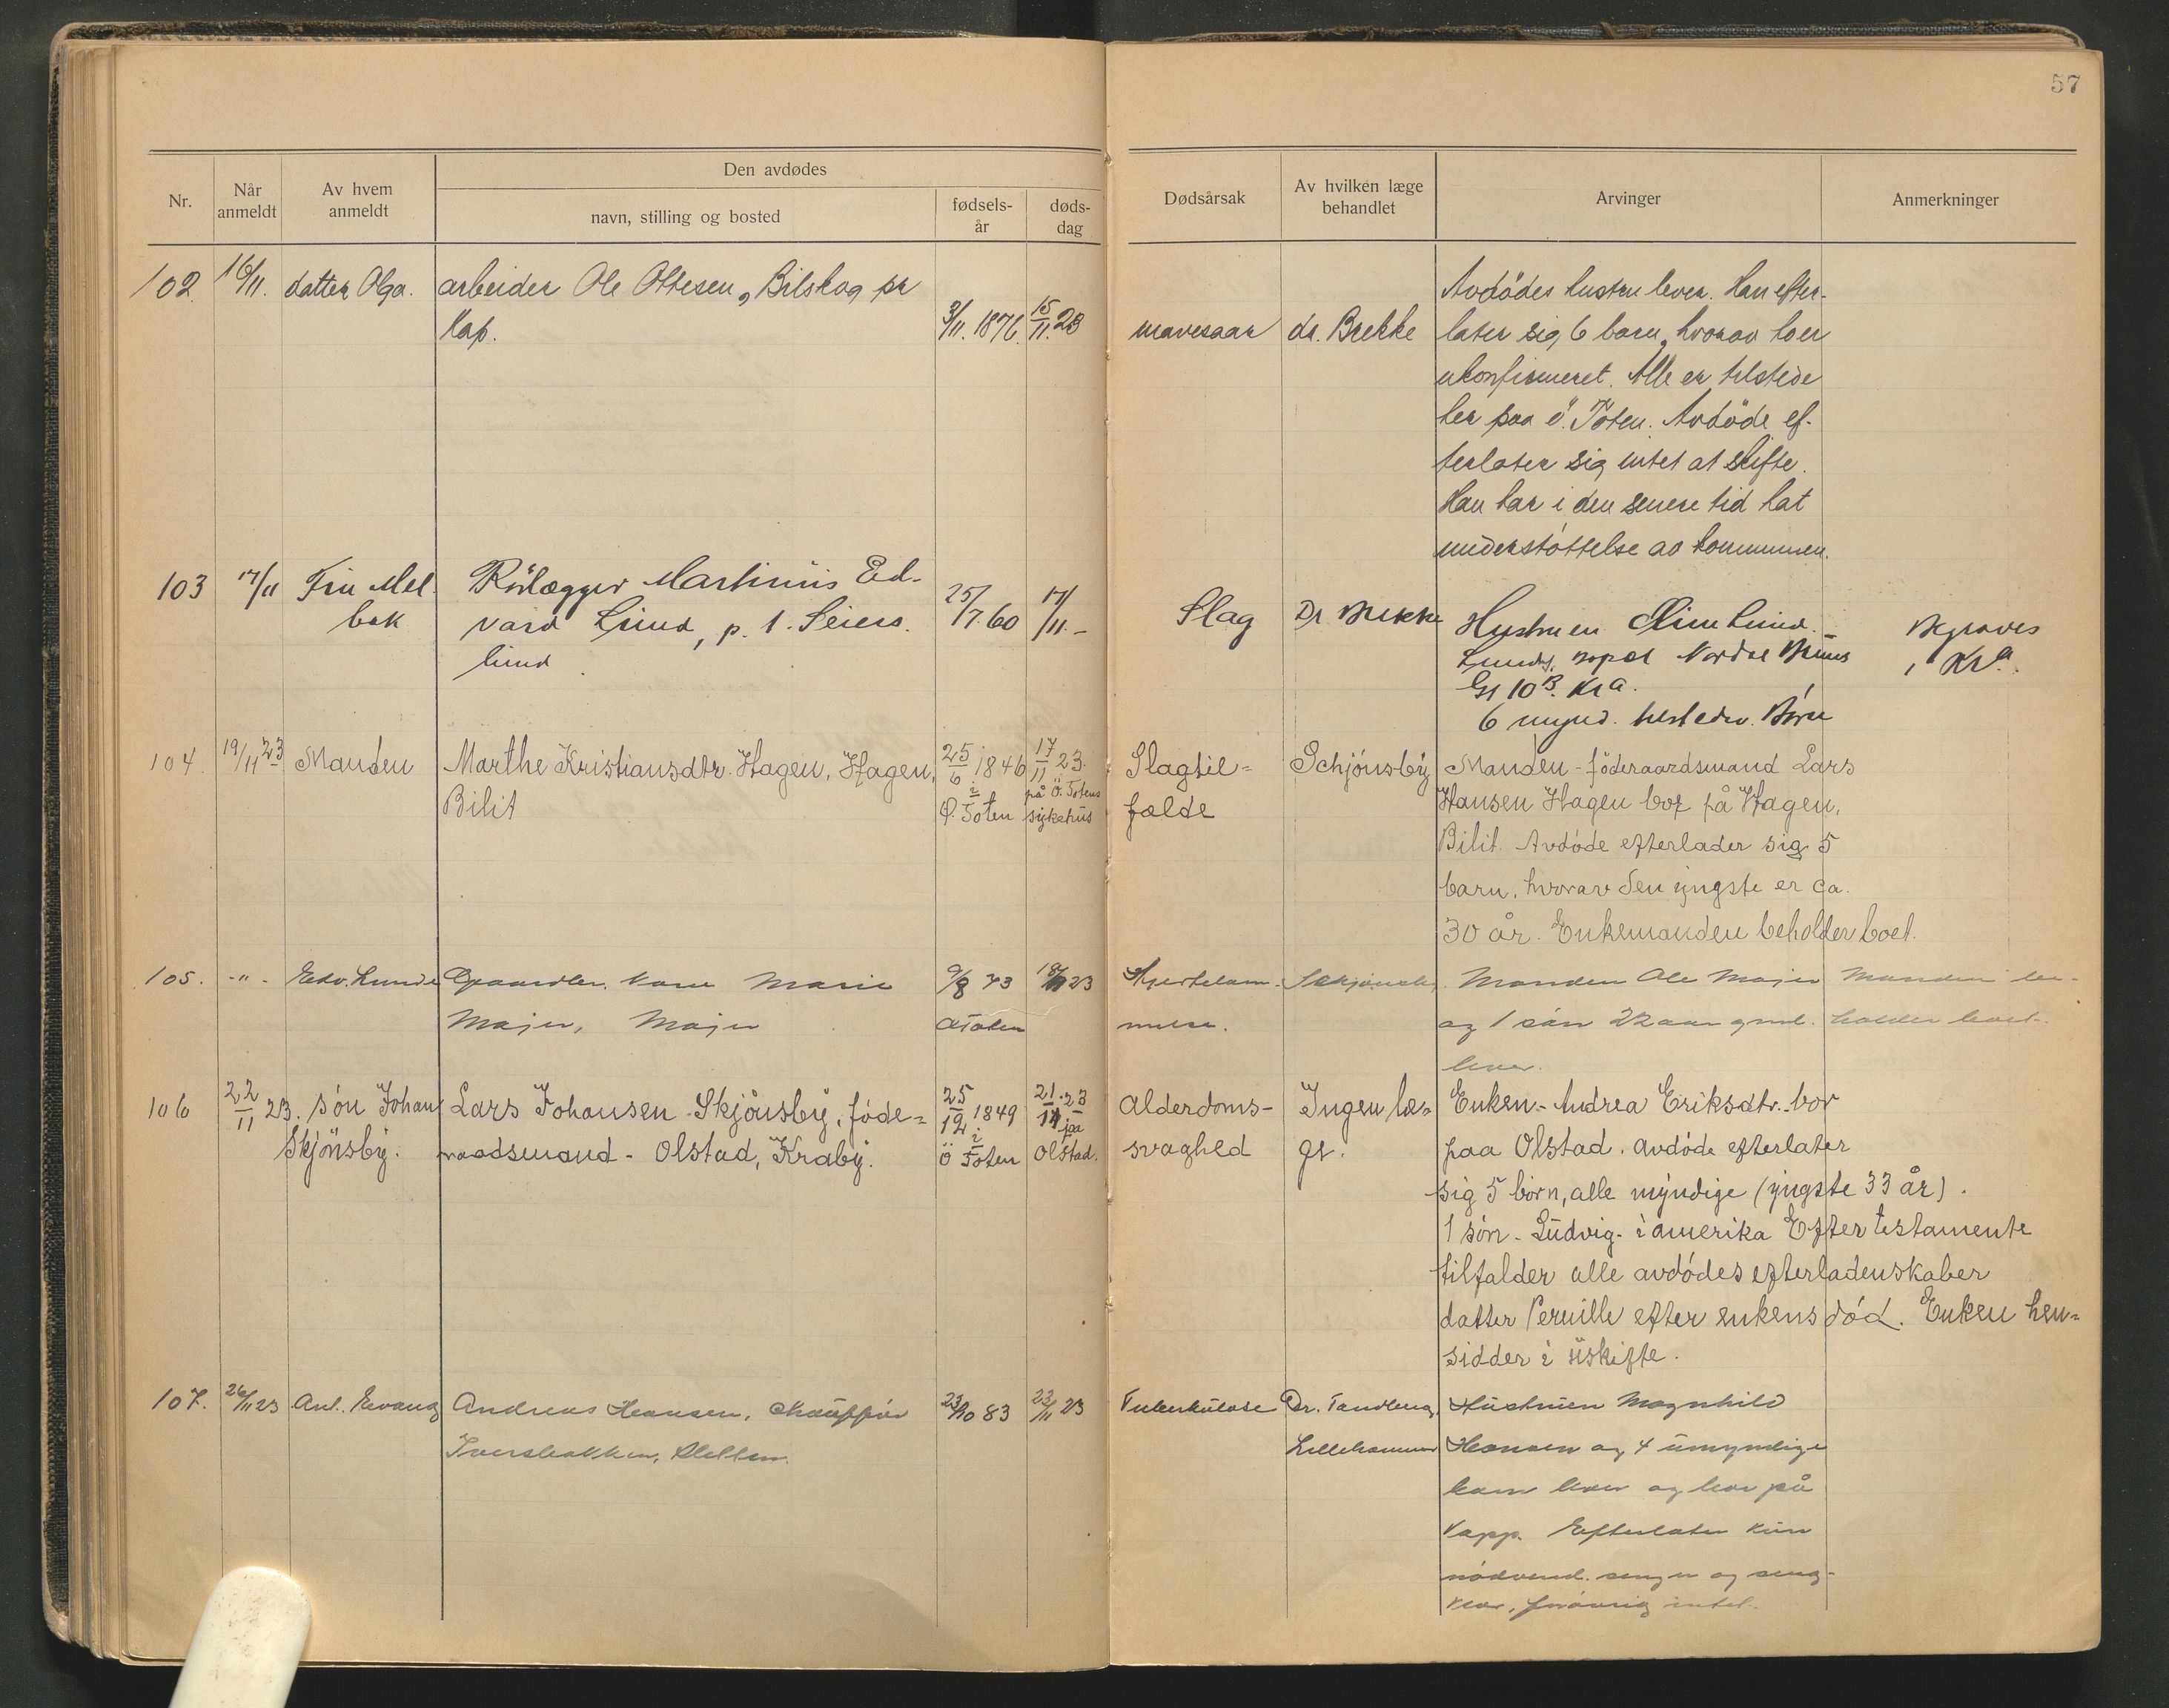 57
Den avdødes
Nr.
Når anmeldt
Av hvem anmeldt
navn, stilling og bosted
fødsels-år
døds-dag
Dødsårsak
Av hvilken læge behandlet
Arvinger
Anmerkninger
102 16/11. datter Olga. arbeider Ole Ottesen, Bilskog pr
Kap. 3/11. 1876. 15/11. 23 mavesaar dr. Brekke
Avdödes hustru lever. Han efter-
later sig 6 barn, hvorav to er
ukonfirmeret. Alle er tilstede
her paa ö. Toten. Avdöde ef-
terlater sig intet at skifte.
Han har i den senere tid hat
understöttelse av kommunen.
103 17/11 Fru Mel
bak
Rörlægger Martinius Ed-
vard Lund, p. t. Seiers
lund
25/7. 60 17/11 - Slag Dr Brekke
Hustruen Lund
Lunds, bopæl Nordre
Gt 10 B. Kra.
6 mynd. Börn
Begraves
i Kra.
104. 19/11 23 Manden Marthe Kristiansdtr. Hagen, Hagen,
Bilit
25/6 1846
i
Ö. Toten
17/11 23.
på Ö. Totens
sykehus
Slagtil-
fælde
Schjönsby
Manden - föderaadsmand Lars
Hansen Hagen bor på Hagen,
Bilit. Avdöde efterlader sig 5
barn, hvorav den yngste er ca.
30 år. Enkemanden beholder boet.
105. -"- Edv. Lunde Gaardbr. Kone Marie
Majer, Majer
9/8 43
Ø Toten
18/11 23
Hjertelam-
melse.
Schjønsby
Manden Ole Majer
og 1 sön 22 aar gml.
lever.
Manden be-
holder boet.
106 22/11 23. sön Johan
Skjönsby.
Lars Johansen Skjönsby, föde-
raadsmand - Olstad, Kraby.
25/12 1849
i
Ö Toten
21/11 23
paa
Olstad.
Alderdoms-
svaghed
Ingen læ-
ge.
Enken - Andrea Eriksdtr. bor
paa Olstad. Avdöde efterlater
sig 5 börn, alle myndige (yngste 33 år).
1 sön - Ludvig - i Amerika Efter testamente
tilfalder alle avdödes efterladenskaber
datter Pernille efter enkens död. Enken hen-
sidder i uskifte.
107. 26/11 23 Ant. Evang Andreas Hansen, chauffør
Iversbakken, Sletten.
23/10 83 23/11 23 Tuberkulose
Dr. Tandberg,
Lillehammer
Hustruen Magnhild
Hansen og 4 umyndige
barn lever og bor på
Kapp. Efterlater kun
nödvend. senger og seng-
klær, forövrig intet.